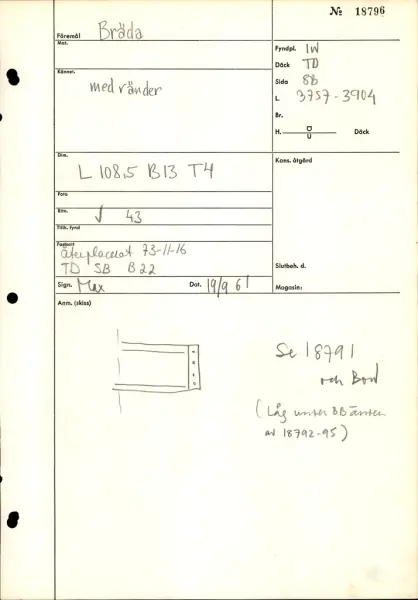 № 18796
Föremål Bräda
Mat.
Fyndpl. IW
Däck TD
Sida BB
L. 3757-3904
Br.
H. Ö U Däck
Kännet.
med ränder
Dim.
L 108,5 B13 T4
Kons. åtgärd
Foto
Ritn. 43
Tillh. fynd
Återplacerat 73-11-16
TD SB B22
Slutbeh. d.
Sign. Max Dat. 19/9 61
Magasin:
Anm. (skiss)
Se 18791
och Bord
(Låg under BB änden
av 18792-95)